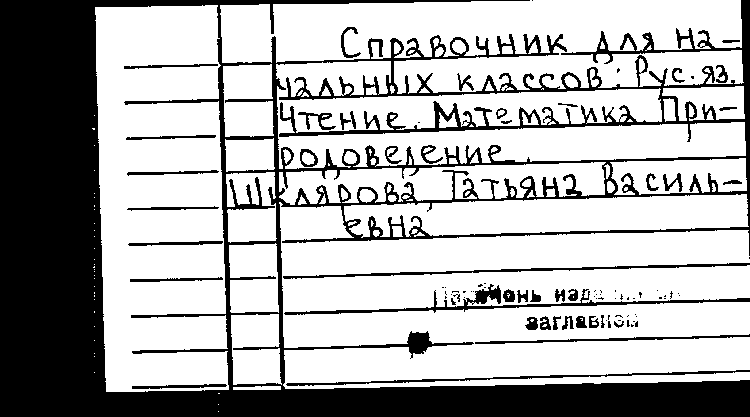 Справочник для на-
чальных классов: Рус. яз.
Чтение. Математика. При-
родоведение.
Шклярова, Татьяна Василь-
евна
заглавном